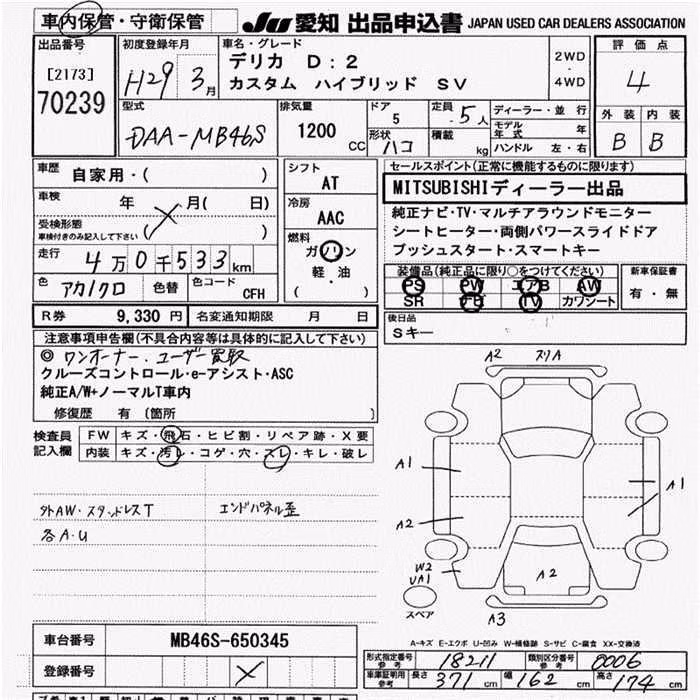 車内保管・守衛保管
JU 愛知 出品申込書 JAPAN USED CAR DEALERS ASSOCIATION
出品番号
[2173]
70239
初度登録年月
H29 3月
車名・グレード
デリカ D:2
カスタム ハイブリッド SV
2WD
・
4WD
評価点
4
外装 内装
B B
型式
DAA-MB46S
排気量
1200 CC
ドア
5
形状
ハコ
定員 5人
積載 kg
ディーラー・並行
モデル年式 年
ハンドル 左・右
車歴
自家用・( )
車検
年 月( 日)
受検形態
車検付きのみ記入して下さい ( )
走行
4万0千533km
色 アカ/クロ
色替
色コード
CFH
シフト
AT
冷房
AAC
燃料
ガソリン
軽・油
( )
セールスポイント(正常に機能するものに限ります)
MITSUBISHIディーラー出品
純正ナビ・TV・マルチアラウンドモニター
シートヒーター・両側パワースライドドア
プッシュスタート・スマートキー
装備品(純正品に限り○をつけてください)
PS PW エアB AW
SR ナビ TV カワシート
新車保証書
有・無
R券 9,330 円
名変通知期限 月 日
後日品
Sキー
注意事項申告欄(不具合内容等は具体的に記入して下さい)
◎ ワンオーナー、ユーザー買取
クルーズコントロール・e-アシスト・ASC
純正A/W+ノーマルT車内
修復歴 有 〔箇所 〕
検査員
記入欄
FW キズ・飛石・ヒビ割・リペア跡・X要
内装 キズ・汚レ・コゲ・穴・スレ・キレ・破レ
外AW・スタッドレスT
エンドパネル歪
各A・U
A2 スリA
A1
A1
A2
W2
UA1
A2
スペア
A3
A-キズ E-エクボ U-凹み W-補修跡 S-サビ C-腐食 XX-交換済
車台番号 MB46S-650345
登録番号
形式指定番号
参考
18211
類別区分番号
参考
0006
車庫証明用
参考
長さ 371 cm 幅 162 cm 高さ 174 cm